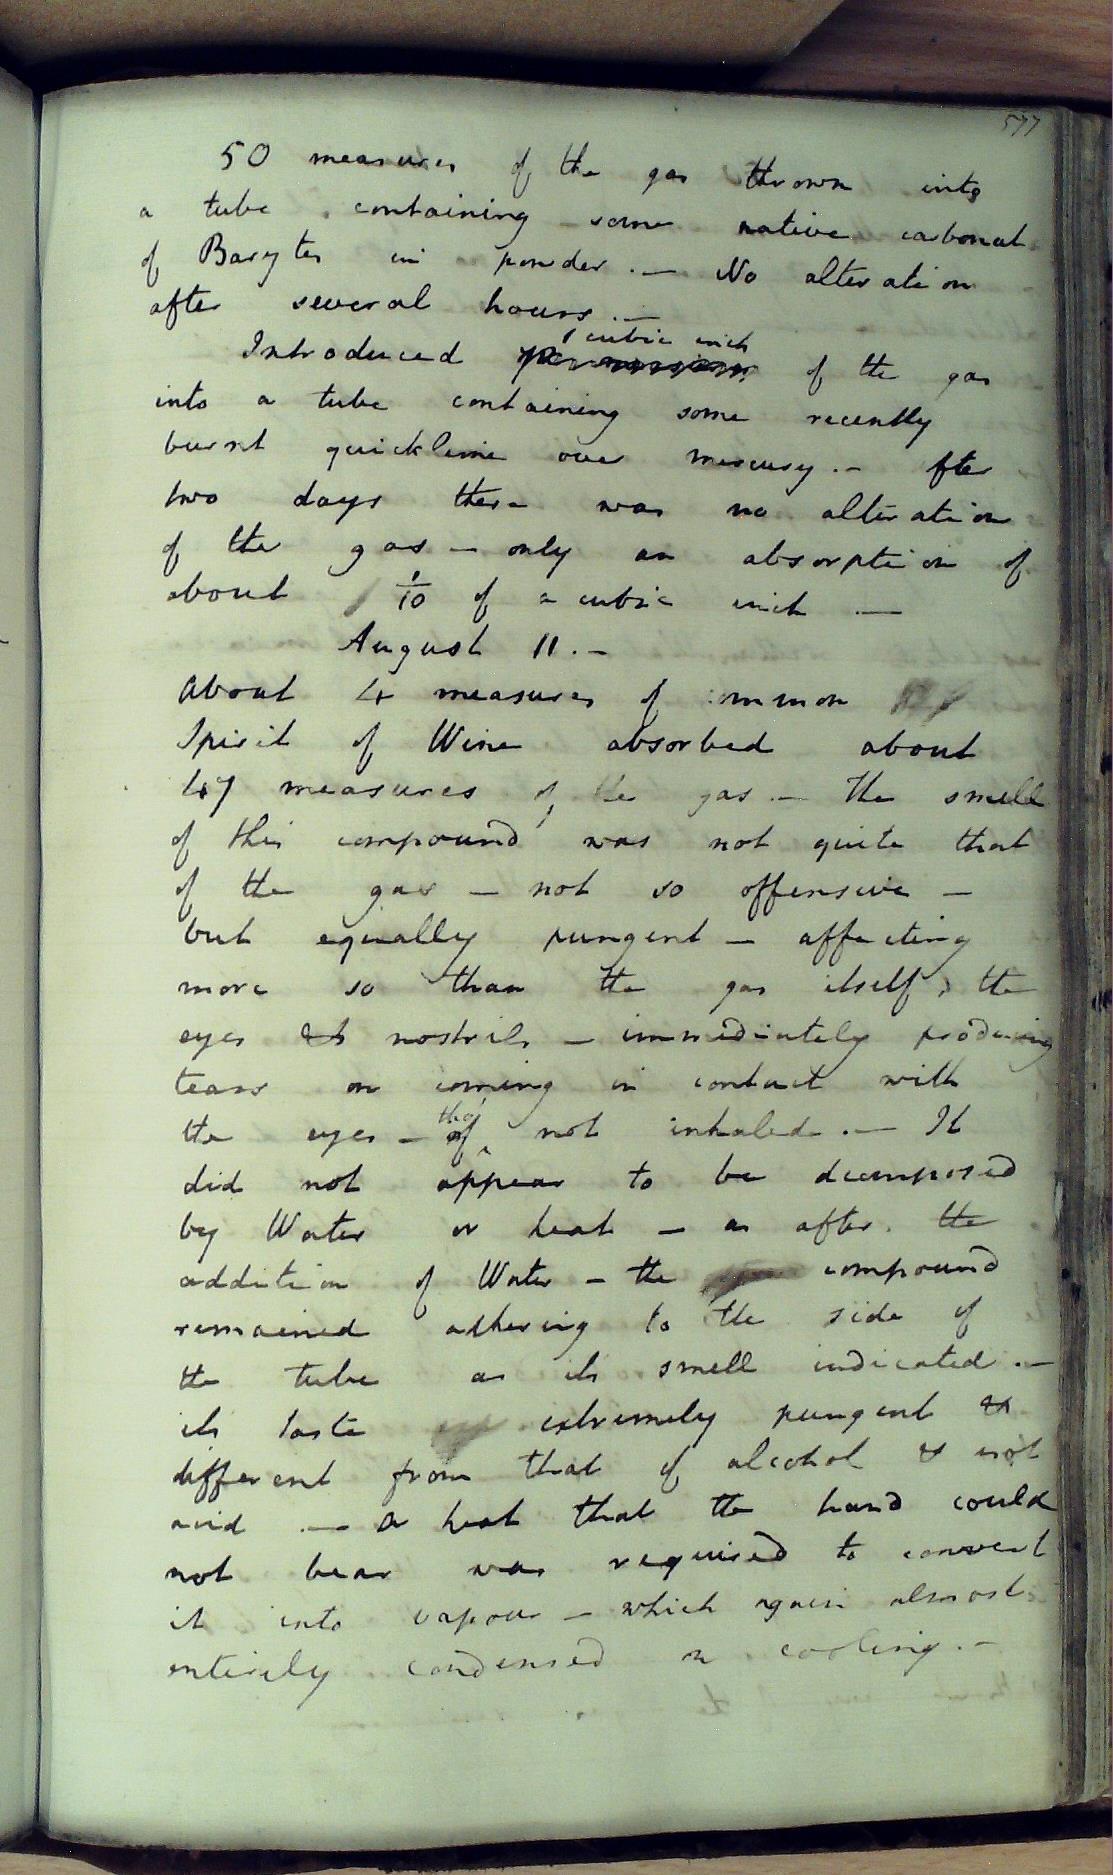 577
50 measures of the gas thrown into
a tube containing some native carbonat
of Barytes in powder. — No alteration
after several hours. —
1 cubic inch
Introduced of the gas
into a tube containing some recently
burnt quicklime over mercury. — fter
two days there was no alteration
of the gas — only an absorption of
about 1/10 of a cubic inch —
August 11. —
About 4 measures of ommon
Spirit of Wine absorbed about
47 measures of the gas. — The smell
of this compound was not quite that
of the gas — not so offensive —
but equally pungent — affecting
more so than the gas itself, the
eyes & nostrils — immediately producing
tears on coming in contact with
tho'
the eyes — if not inhaled. — It
did not appear to be decomposed
by Water or heat — as after the
addition of Water — the compound
remained athering to the side of
the tube as its smell indicated. —
its taste extremely pungent &
different from that of alcohol & not
acid. — a heat that the hand could
not bear was required to convert
it into vapour — which again almost
entirely condensed on cooling. —